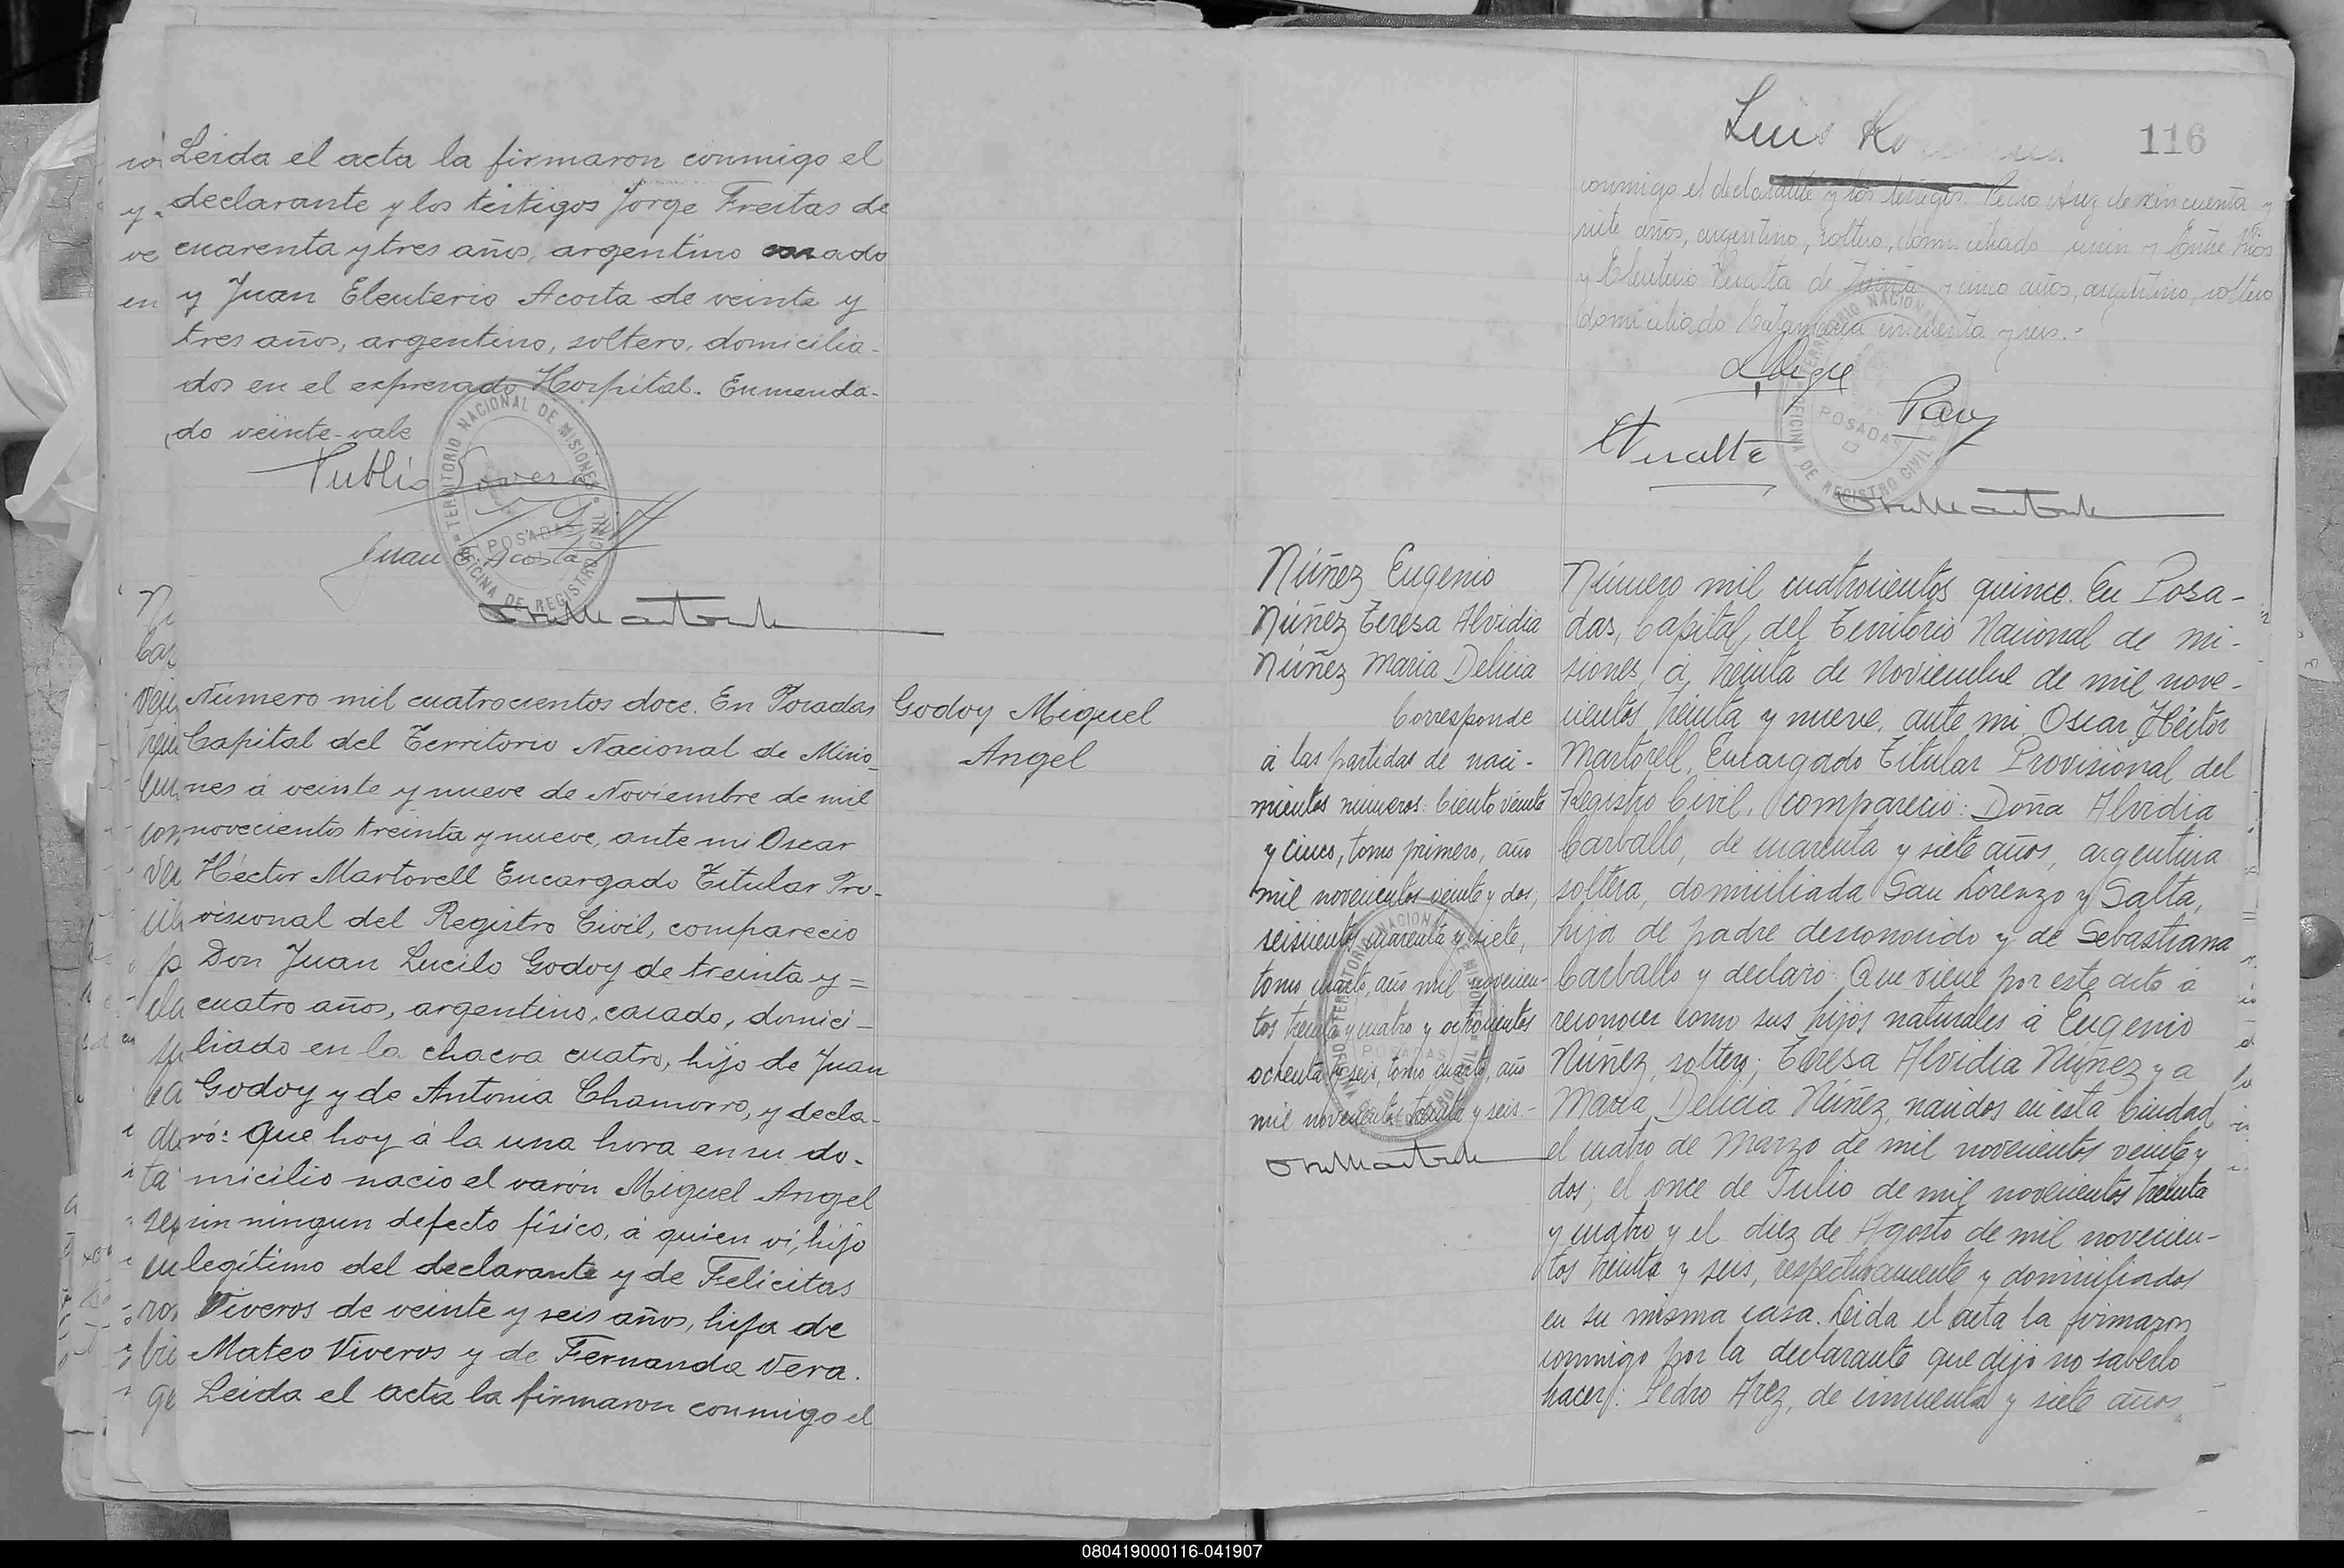 Leida el acta la firmaron conmigo el
declarante y los testigos Jorge Freitas de
cuarenta y tres años, argentino casado
y Juan Eleuterio Acosta de veinte y
tres años, argentino, soltero, domicilia-
dos en el expresado Hospital. Enmenda-
do veinte-vale
Juan E. Acosta
TERRITORIO NACIONAL DE MISIONES
POSADAS
OFICINA DE REGISTRO CIVIL
Número mil cuatrocientos doce. En Posadas
Capital del Territorio Nacional de Misio-
nes á veinte y nueve de Noviembre de mil
novecientos treinta y nueve, ante mi Oscar
Héctor Martorell Encargado Titular Pro-
visional del Registro Civil, comparecio
Don Juan Lucilo Godoy de treinta y=
cuatro años, argentino, casado, domici-
liado en la chacra cuatro, hijo de Juan
Godoy y de Antonia Chamorro, y decla-
ró: Que hoy á la una hora en su do-
micilio nacio el varón Miguel Angel
sin ningun defecto físico, á quien vi, hijo
legítimo del declarante y de Felicitas
Viveros de veinte y seis años, hija de
Mateo Viveros y de Fernanda Vera.
Leida el acta la firmaron conmigo el
Godoy Miguel
Angel
116
Luis
conmigo el declarante y los testigos Pedro Arez de cincuenta y
siete años, argentino, soltero, domiciliado Junin y Entre Rios
y Eleuterio Peralta de treinta y cinco años, argentino, soltero
domiciliado Catamarca cincuenta y seis.-
TERRITORIO NACIONAL
POSADAS
OFICINA DE REGISTRO CIVIL
Núñez Eugenio
Núñez Teresa Alvidia
Núñez Maria Delicia
Corresponde
á las partidas de naci-
mientos números: Ciento veinte
y cinco, tomo primero, año
mil novecientos veinte y dos;
seiscientos cuarenta y siete,
tomo cuarto, año mil novecien-
tos treinta y cuatro y ochocientos
ochenta y seis, tomo cuarto, año
mil novecientos treinta y seis.-
Número mil cuatrocientos quince. En Posa-
das, Capital, del Territorio Nacional de Mi-
siones, á treinta de Noviembre de mil nove-
cientos treinta y nueve, ante mi, Oscar Héctor
Martorell, Encargado Titular Provisional del
Registro Civil, compareció: Doña Alvidia
Carballo, de cuarenta y siete años, argentina
soltera, domiciliada San Lorenzo y Salta,
hija de padre desconocido y de Sebastiana
Carballo y declaró: Que viene por este acto á
reconocer como sus hijos naturales á Eugenio
Núñez, soltero; Teresa Alvidia Núñez y a
Maria Delicia Núñez, nacidos en esta Ciudad
el cuatro de Marzo de mil novecientos veinte y
dos; el once de Julio de mil novecientos treinta
y cuatro y el diez de Agosto de mil novecien-
tos treinta y seis, respectivamente y domiciliados
en su misma casa. Leida el acta la firmaron
conmigo por la declarante que dijo no saberlo
hacer: Pedro Arez, de cincuenta y siete años
080419000116-041907